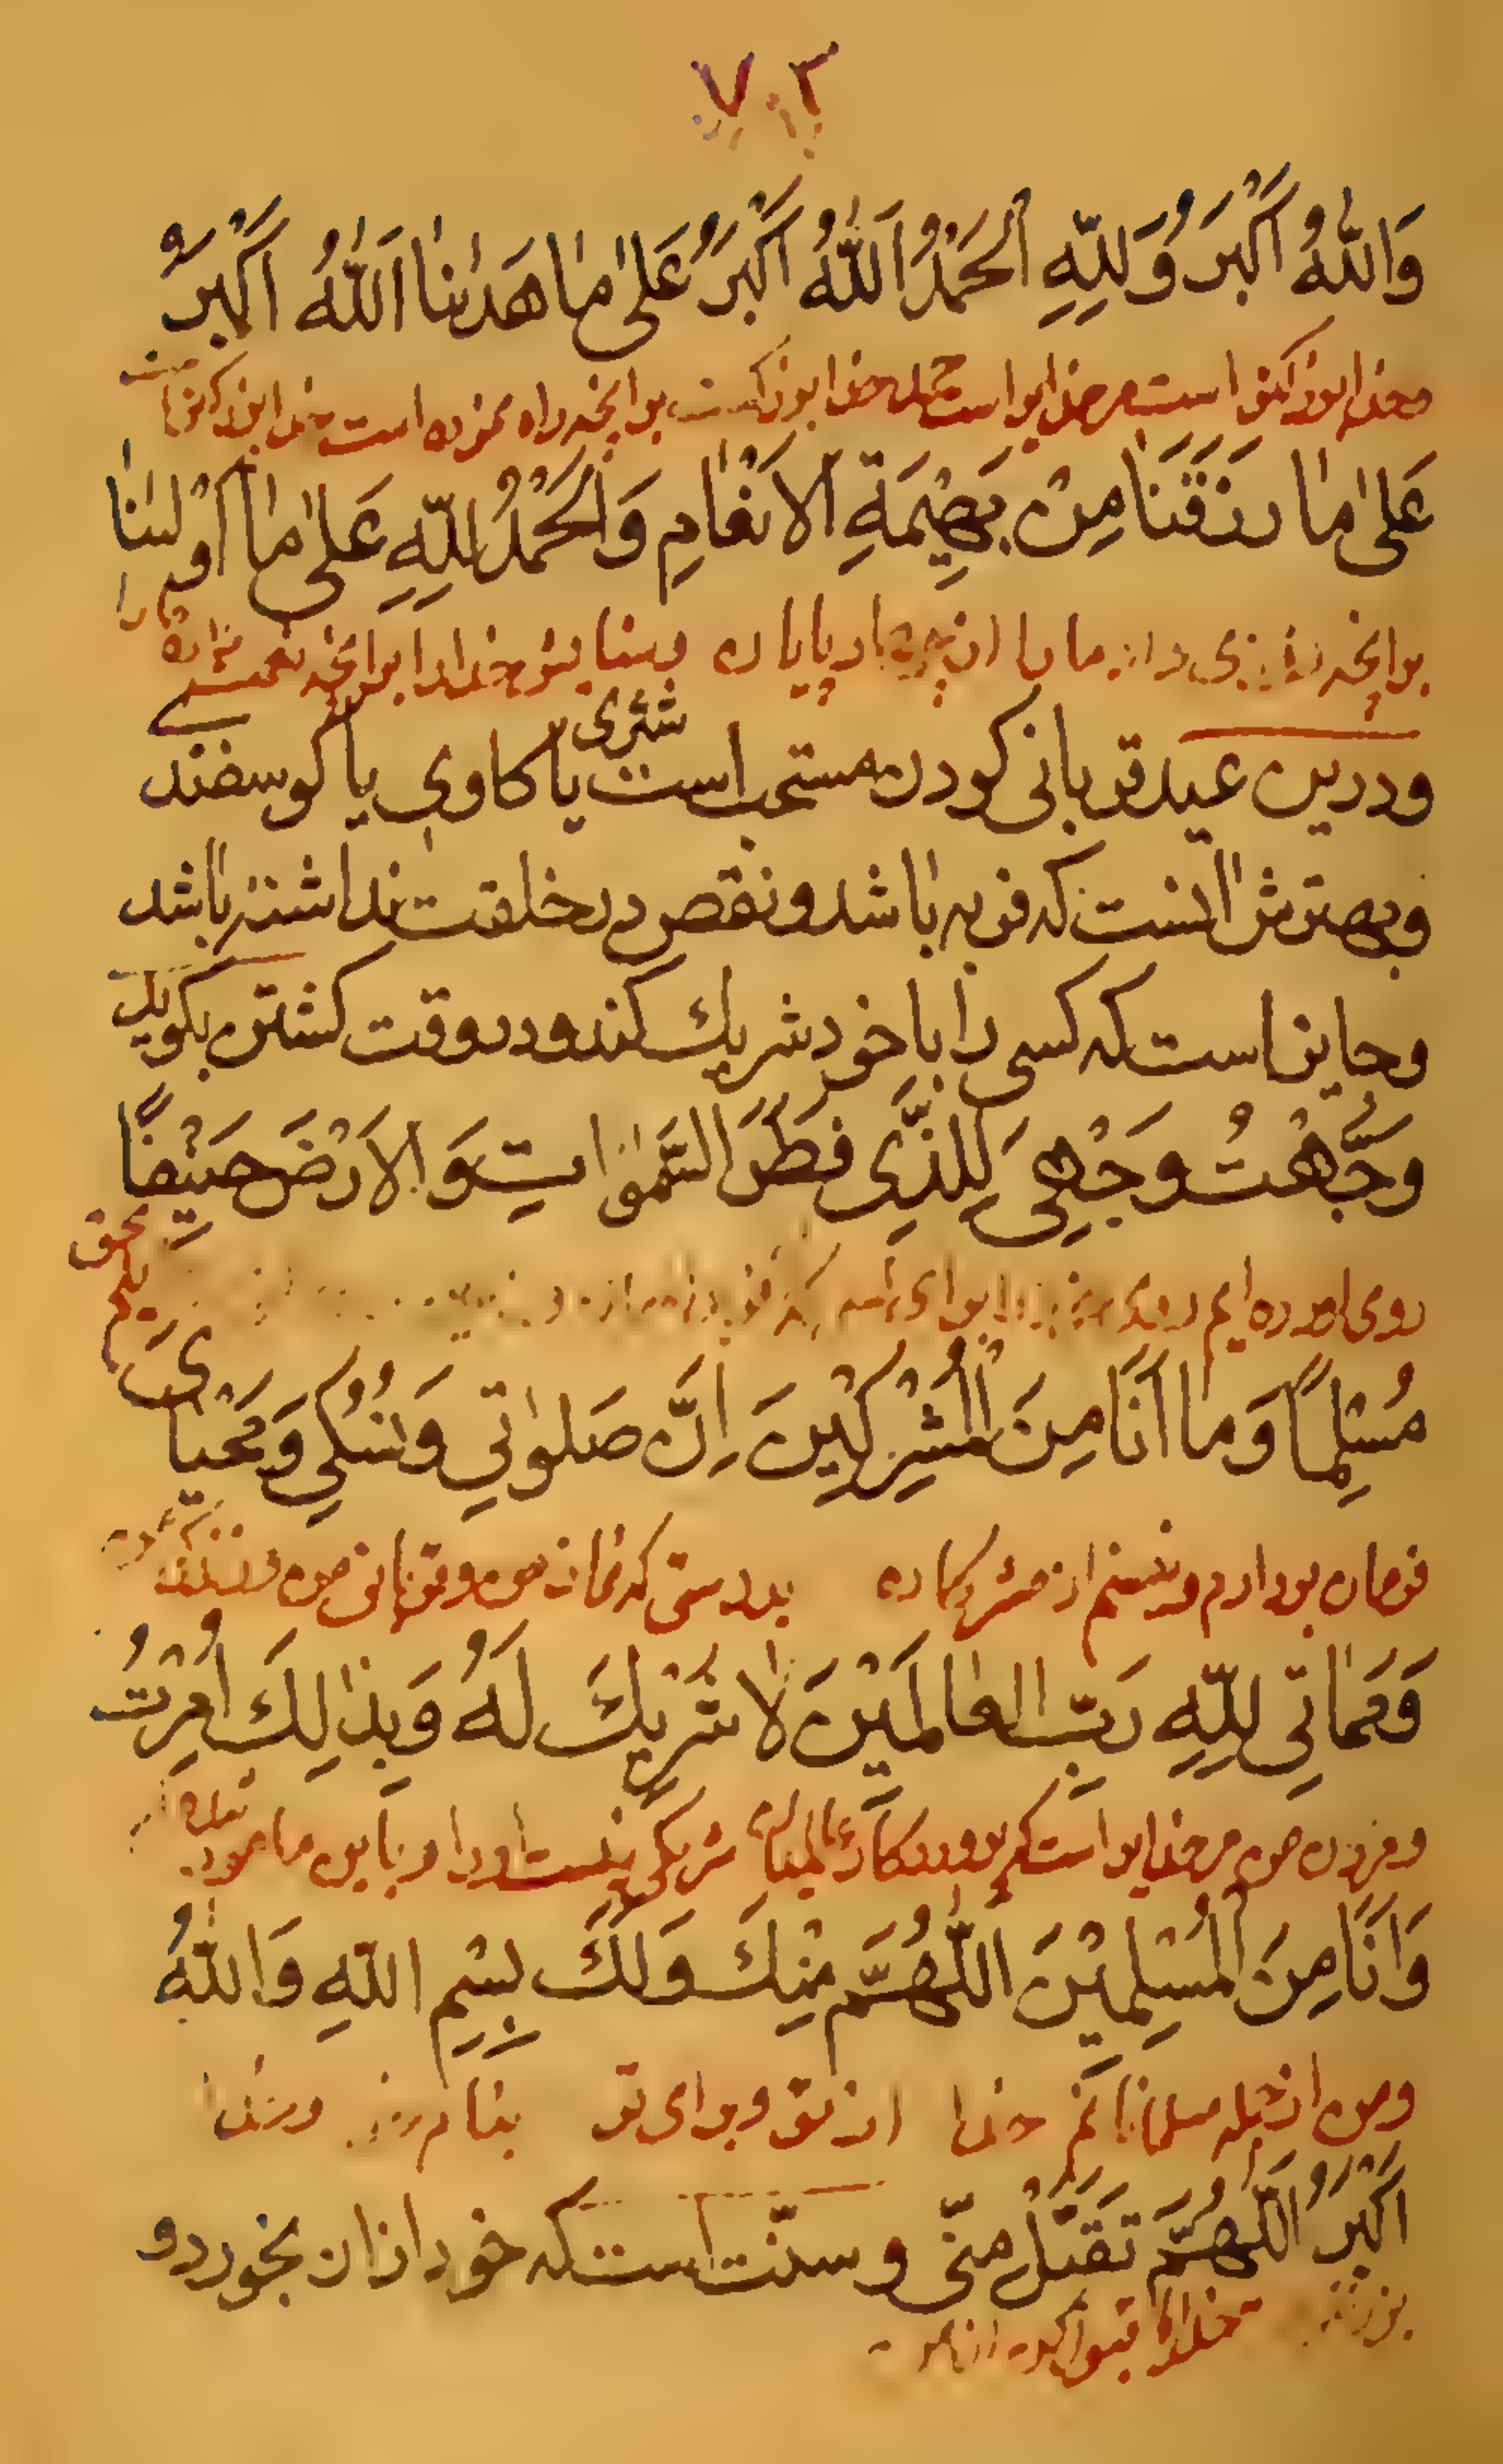 ٧٠٣
وَاللّٰهُ اَكْبَرُ وَلِلّٰهِ الْحَمْدُ اَللّٰهُ اَكْبَرُ عَلٰى مٰا هَدٰىنٰا اَللّٰهُ اَكْبَرُ
بزرگتر است مر خدایرا است خدا بزرگست بر آنچه راه نموده است
عَلٰى مٰا رَزَقَنٰا مِنْ بَهِيْمَةِ الْاَنْعٰامِ وَالْحَمْدُ لِلّٰهِ عَلٰى مٰا اَوْلٰىنٰا
بر آنچه روزی ما را از چهارپایان وستایش خدا را بر آنچه نعمت ما را
ودرین عید قربانی کردن مستحب است شتری یا کاوی یا کوسفند
وبهترش انست که فربه باشد ونقص در خلقت نداشته باشد
وجایز است که کسی را با خود شریك کند ودر وقت کشتن بکوید
وَجَّهْتُ وَجْهِىَ لِلَّذِى فَطَرَ السَّمٰوٰاتِ وَالْاَرْضَ حَنِيْفًا
روی اورده ایم روی
مُسْلِمًا وَمٰا اَنَا مِنَ الْمُشْرِكِيْنَ اِنَّ صَلوٰاتِي وَنُسُكِي وَمَحْيٰاىَ
فرمان بردارم ونیستم از مشرکان بدرستی که نماز من وقربانی من
وَمَمٰاتِي لِلّٰهِ رَبِّ الْعٰالَمِيْنَ لٰا شَرِيْكَ لَهُ وَبِذٰلِكَ اُمِرْتُ
ومردن من مر خدایرا است که پروردکار عالمیان شریکی نیست اورا وباین مامور
وَاَنَا مِنَ الْمُسْلِمِيْنَ اَللّٰهُمَّ مِنْكَ وَلَكَ بِسْمِ اللّٰهِ وَاللّٰهُ
ومن از جمله مسلمانانم خدا از تو وبرای تو بنام وخدا
اَكْبَرُ اَللّٰهُمَّ تَقَبَّلْ مِنّي وسنّت است که خود ازان بخورد و
خدایا قبول کن از من